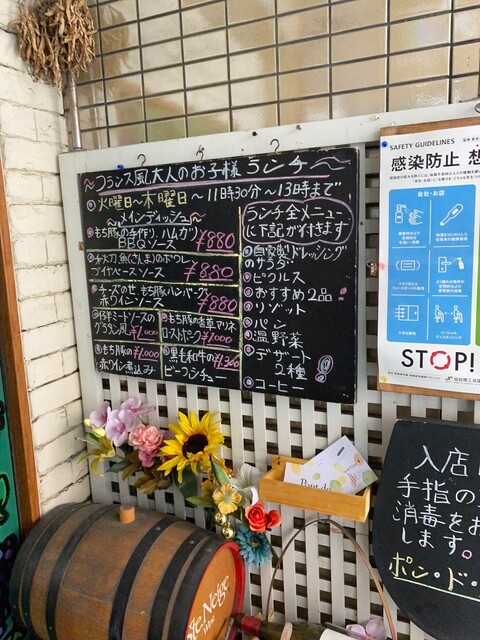 ～フランス風大人のお子様ランチ～
火曜日～木曜日～11時30分～13時まで
～メインディッシュ～
もち豚の手作り、ハムカツ
BBQソース ¥880
秋刀魚(さんま)のポワレ
ブイヤベースソース ¥880
チーズのせ もち豚ハンバーグ
赤ワインソース ¥880
洋ミートソースの
グラタン風 ¥1,000
もち豚の香草マリネ
ローストポーク ¥1,000
もち豚の ¥1,000
赤ワイン煮込み
黒毛和牛の ¥1,300
ビーフシチュー
ランチ全メニュー
に下記が付きます
自家製ドレッシング
のサラダ
ピクルス
おすすめ2品
リゾット
パン
温野菜
デザート
2種
コーヒー
SAFETY GUIDELINES
感染防止
会社・お店
STOP!
入店
手指の
消毒をお
します。
ポン・ド・
Neige